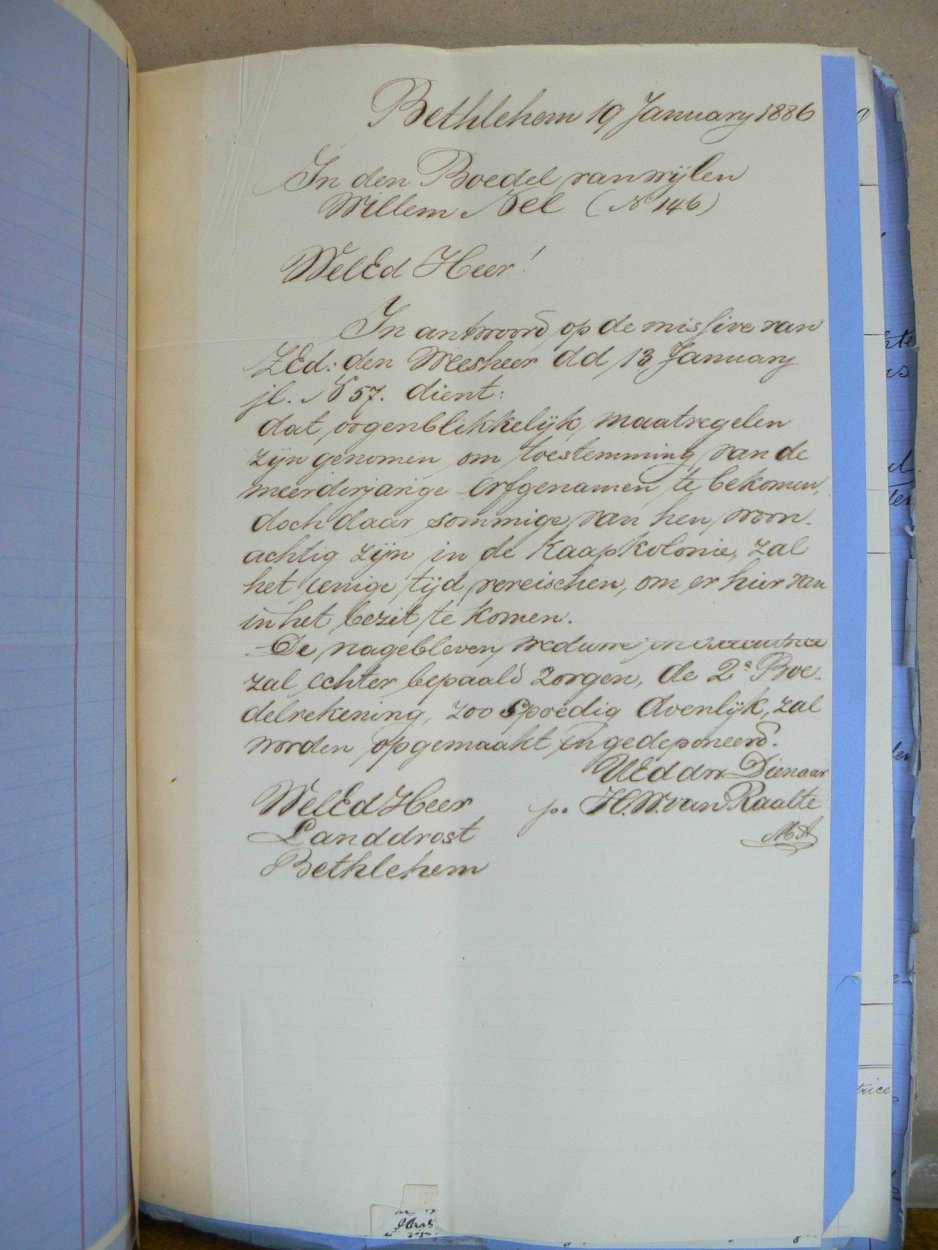 Bethlehem 19 January 1886
In den Boedel van wijlen
Willem Nel (No 146)
WelEd Heer!
In antwoord op de missive van
ZEd: den Weesheer dd 13 January
jl. No 57. dient:
dat oogenblikkelijk maatregelen
zijn genomen om toestemming van de
meerderjarige Erfgenamen te bekomen,
doch daar sommige van hen woon-
achtig zijn in de Kaapkolonie, zal
het eenige tijd vereischen, om er hier van
in het bezit te komen.
De nagebleven weduwe en Executrice
zal echter bepaald zorgen, de 2e Boe-
delrekening, zoo spoedig doenlijk, zal
worden opgemaakt en gedeponeerd.
UEd dw Dienaar
p. H.W. van Raalte
MA
WelEd Heer
Landdrost
Bethlehem